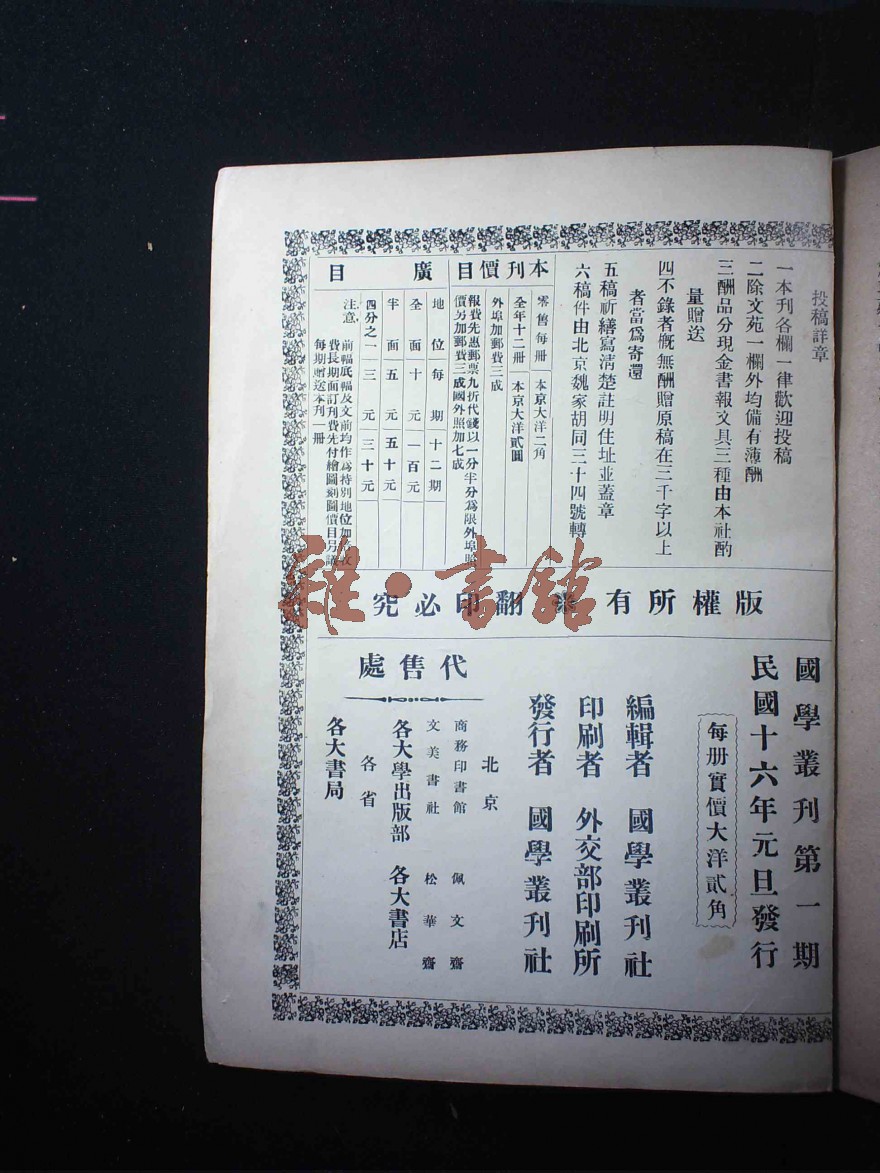 投稿詳章
一本刊各欄一律歡迎投稿
二除文苑一欄外均備有薄酬
三酬品分現金書報文具三種由本社酌
量贈送
四不錄者概無酬贈原稿在三千字以上
者當爲寄還
五稿祈繕寫清楚註明住址並蓋章
六稿件由北京魏家胡同三十四號轉
本刊價目
零售每册 本京大洋二角
全年十二册 本京大洋貳圓
外埠加郵費三成
報費先惠郵票九折代錢以一分半分爲限外埠照
價另加郵費三成國外照加七成
廣 目
地位 每期 十二期
全面 十元 一百元
半面 五元 五十元
四分之一 三元 三十元
注意 前幅底幅及文前均作爲特別地位加
費長期面訂刊費先付繪圖刻圖價目另議
每期贈送本刊一册
版權所有 翻印必究
國學叢刊第一期
民國十六年元旦發行
每册實價大洋貳角
編輯者 國學叢刊社
印刷者 外交部印刷所
發行者 國學叢刊社
代售處
北京
商務印書館 佩文齋
文美書社 松華齋
各大學出版部 各大書店
各省
各大書局
雜·書館